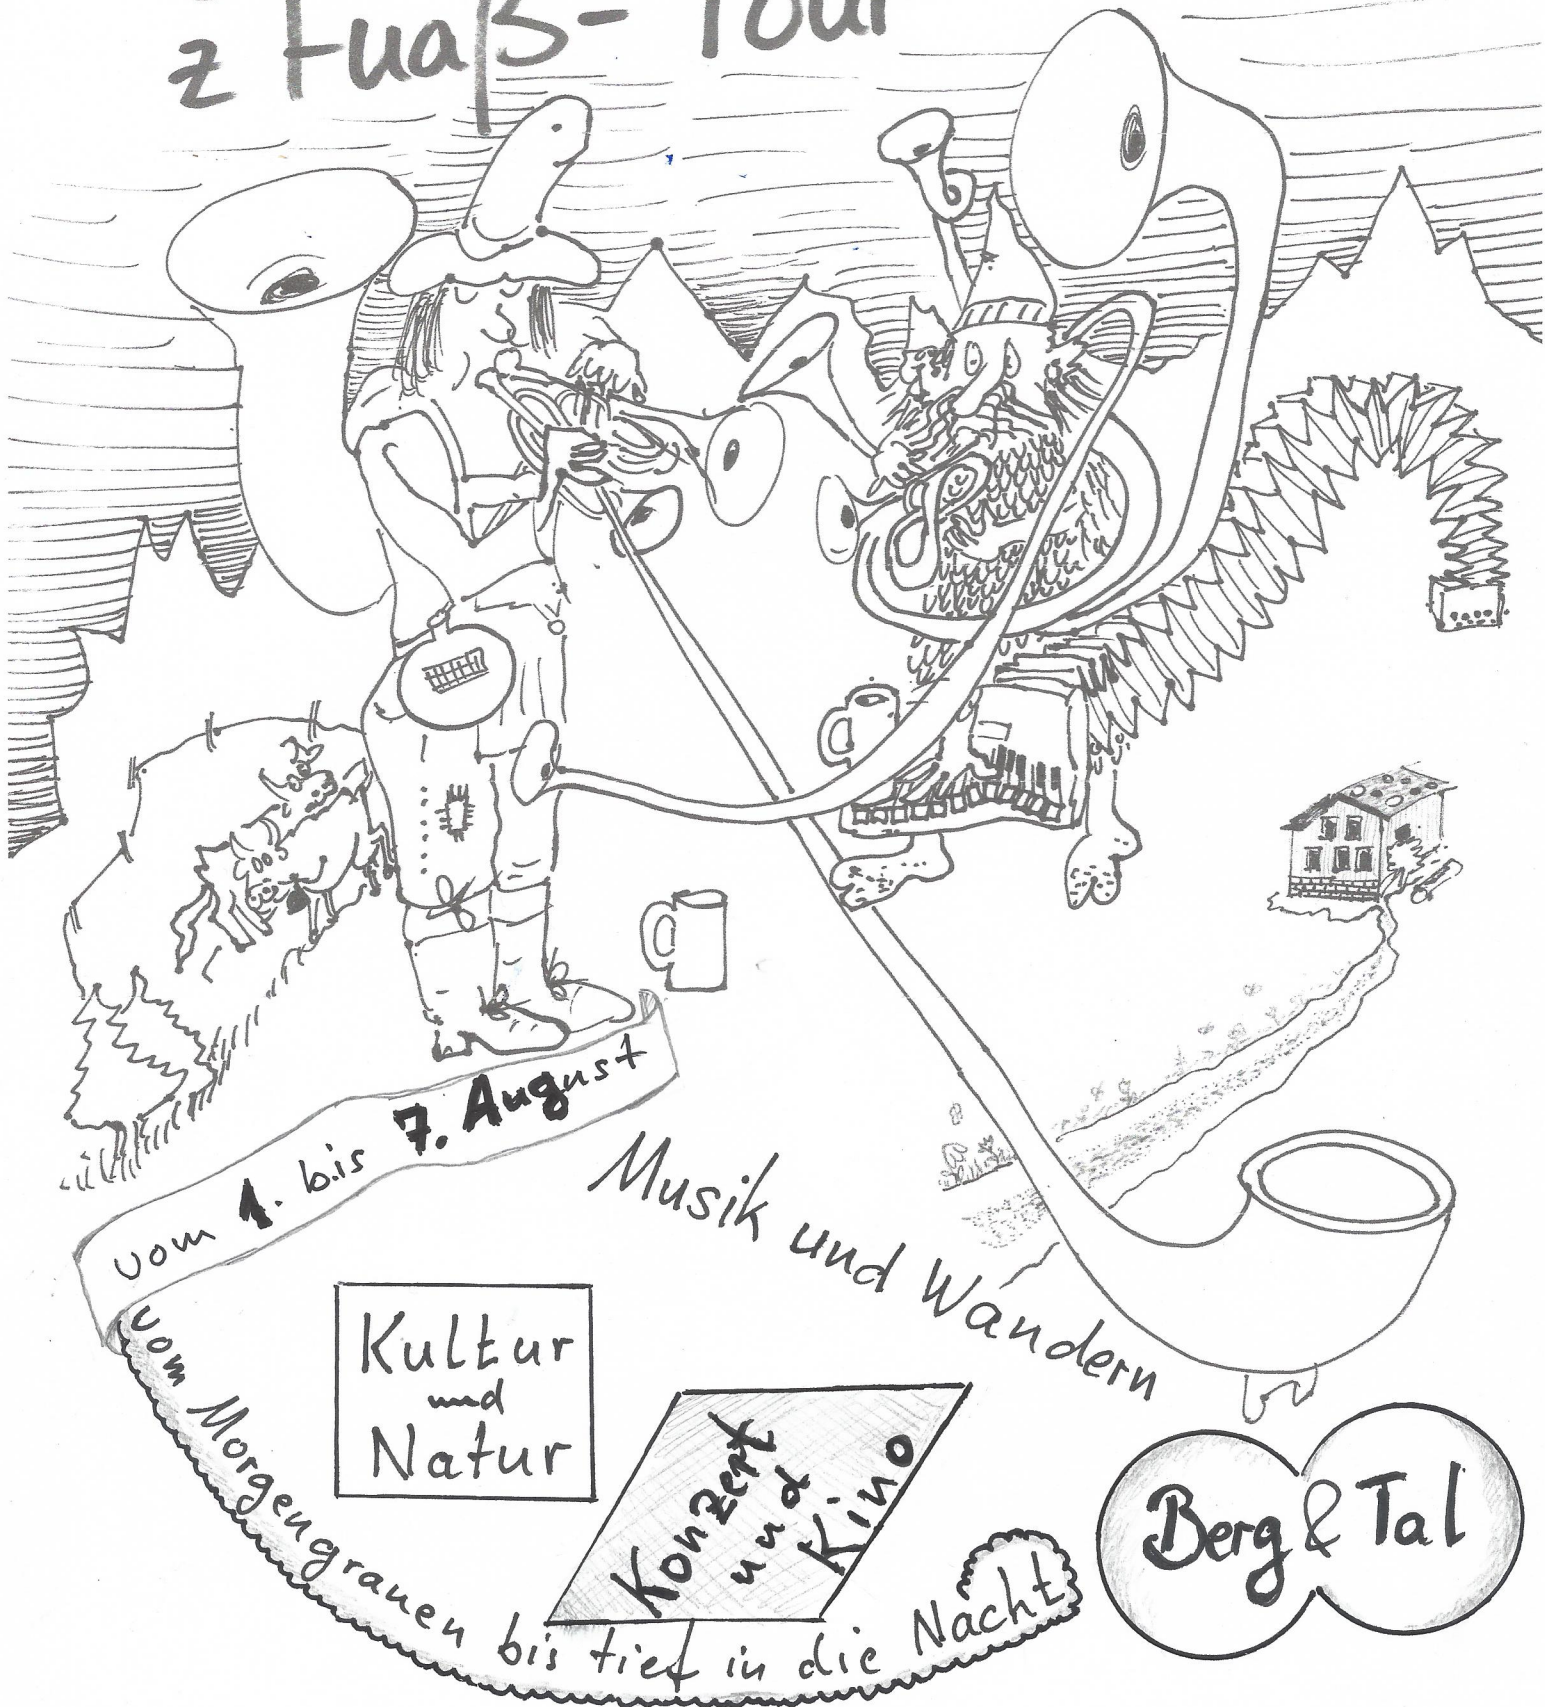 z Fuaß- Tour
vom 1. bis 7. August
Musik und Wandern
Kultur
und
Natur
Konzert
und
Kino
Berg & Tal
vom Morgengrauen bis tief in die Nacht